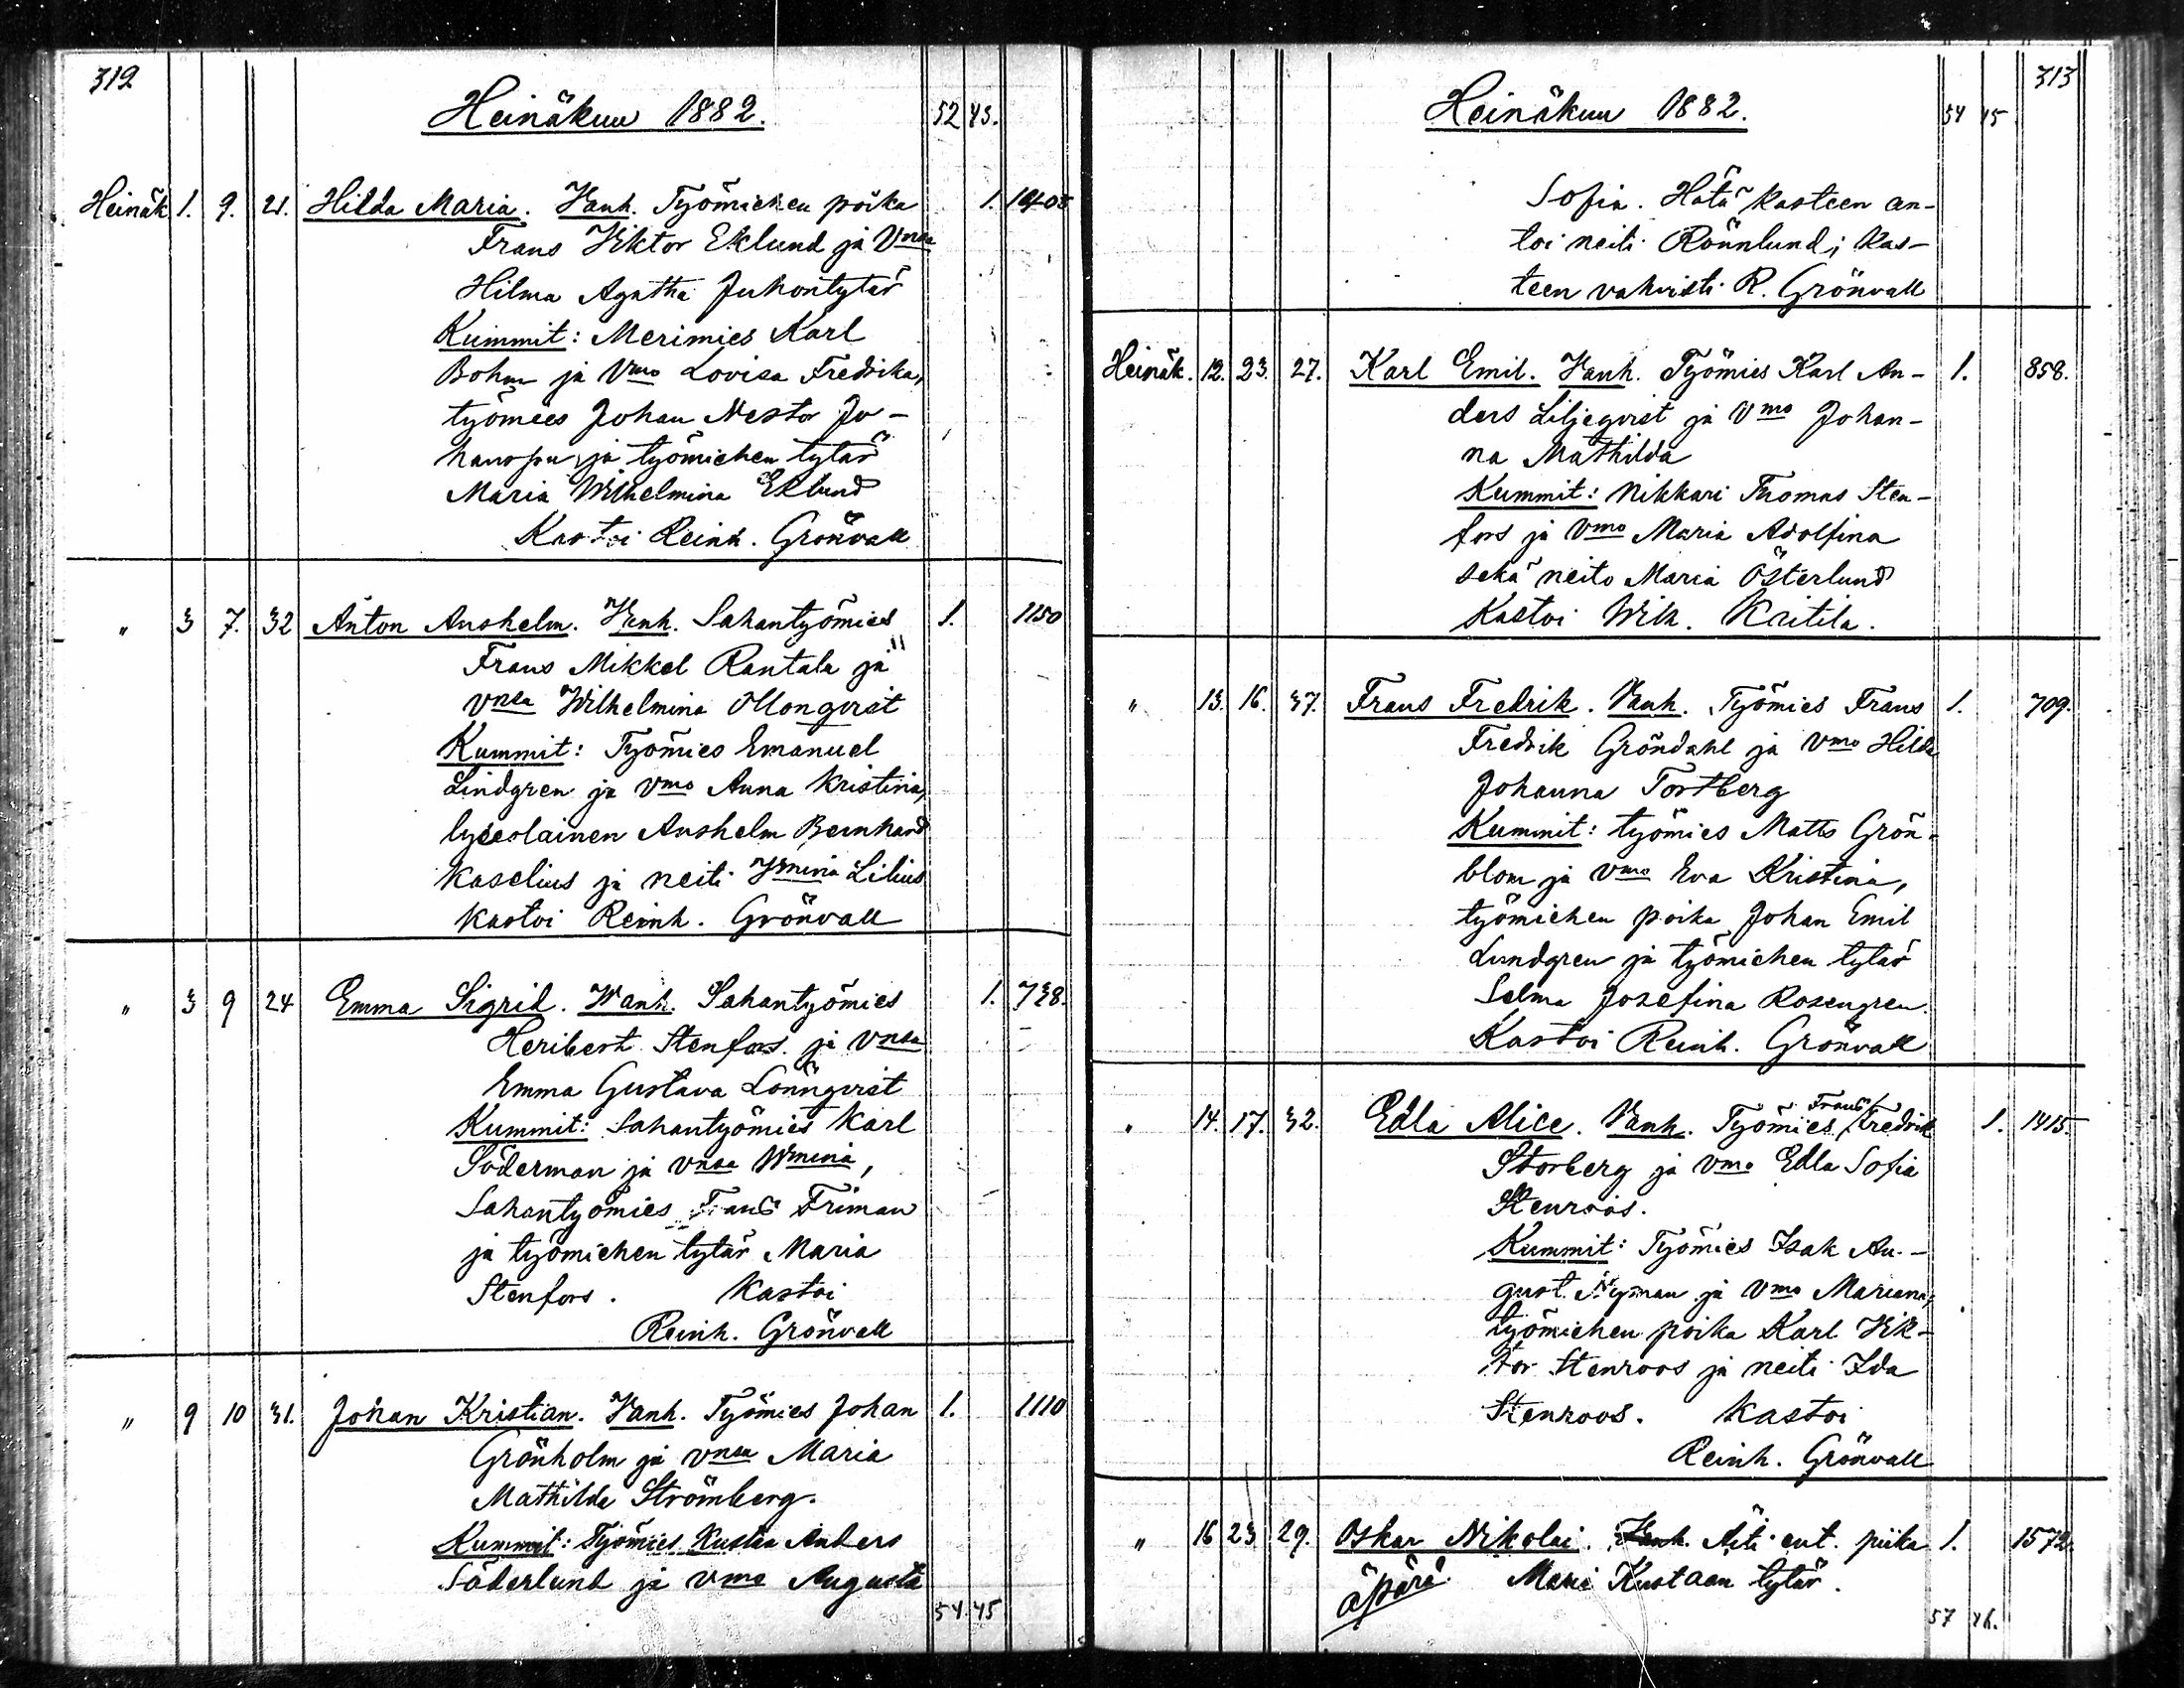 312
Heinäkuu 1882.
52 43.
Heinäk 1. 9. 21. Hilda Maria. Vanh. Työmiehen poika 1. 1408
Frans Viktor Eklund ja Vnsa
Hilma Agatha Juhontytär
Kummit: Merimies Karl
Bohm ja Vmo Lovisa Fredrika,
työmies Johan Nestor Jo-
hanspu ja työmiehen tytär
Maria Wilhelmina Eklund
Kastoi Reinh. Grönvall
" 3 7. 32 Anton Anshelm. Vanh. Sahantyömies 1. 1150
Frans Mikkel Rantala ja
vnsa Wilhelmina Mongvist
Kummit: Työmies Emanuel
Lindgren ja Vmo Anna Kristina,
lyseolainen Anshelm Bernhard
Kaselius ja neiti Vmina Lilius
Kastoi Reinh. Grönvall
" 3 9 24 Emma Sigrid. Wanh. Sahantyömies 1. 738.
Heribert Stenfors ja vnsa
Emma Gustava Lönngvist
Kummit: Sahantyömies Karl
Söderman ja vnsa Wmina,
Sahantyömies Frans Friman
ja työmiehen tytär Maria
Stenfors. Kastoi
Reinh. Grönvall
" 9 10 31. Johan Kristian. Vanh. Työmies Johan 1. 1110
Grönholm ja vnsa Maria
Mathilda Strömberg.
Kummit: Työmies Kustaa Anders
Söderlund ja vmo Augusta
54. 45
313
Heinäkuu 1882.
54 45
Sofia. Hätä kasteen an-
toi neiti Rönnlund; kas-
teen vahvisti R. Grönvall
Heinäk. 12. 23. 27. Karl Emil. Vanh. Työmies Karl An- 1. 858.
ders Liljegvist ja Vmo Johan-
na Mathilda
Kummit: Nikkari Thomas Sten-
fors ja Vmo Maria Adolfina
sekä neito Maria Österlund
Kastoi Wilh. Kritila.
" 13. 16. 37. Frans Fredrik. Vanh. Työmies Frans 1. 709.
Fredrik Gröndahl ja Vmo Hilda
Johanna Torstberg
Kummit: työmies Matts Grön-
blom ja Vmo Eva Kristina,
työmiehen poika Johan Emil
Lundgren ja työmiehen tytär
Selma Josefina Rosengren.
Kastoi Reinh. Grönvall
" 14. 17. 32. Edla Alice. Vanh. Työmies Frans Fredrik 1. 1415.
Storberg ja Vmo Edla Sofia
Stenroos.
Kummit: Työmies Isak Au-
gust Nyman ja Vmo Mariana,
työmiehen poika Karl Vik-
tor Stenroos ja neiti Ida
Stenroos. Kastoi
Reinh. Grönvall
" 16 23 29. Oskar Nikolai. Vanh. Äiti ent. piika 1. 1572.
äpärä. Maria Kustaan tytär.
57 46.